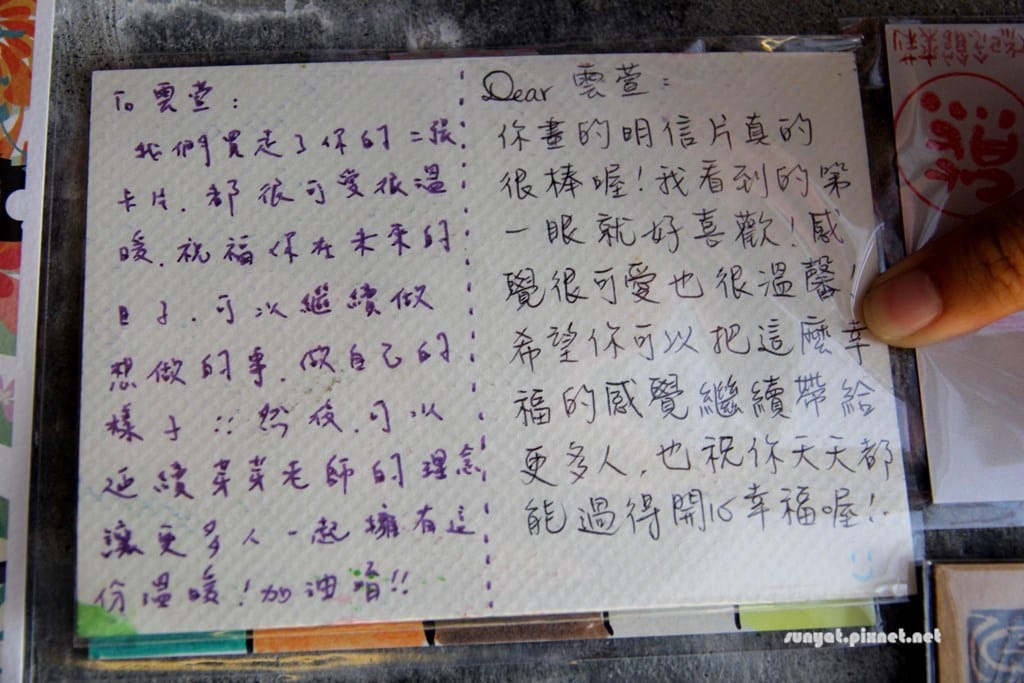 To 雲萱：
我們買走了你的二張
卡片，都很可愛很溫
暖，祝福你在未來的
日子，可以繼續做
想做的事，做自己的
樣子：：然後，可以
延續芽芽老師的理念
讓更多人一起擁有這
份溫暖！加油唷!!
Dear 雲萱：
你畫的明信片真的
很棒喔！我看到的第
一眼就好喜歡！感
覺很可愛也很溫馨！
希望你可以把這麼幸
福的感覺繼續帶給
更多人，也祝你天天都
能過得開心幸福喔！
sunyat.pixnet.net